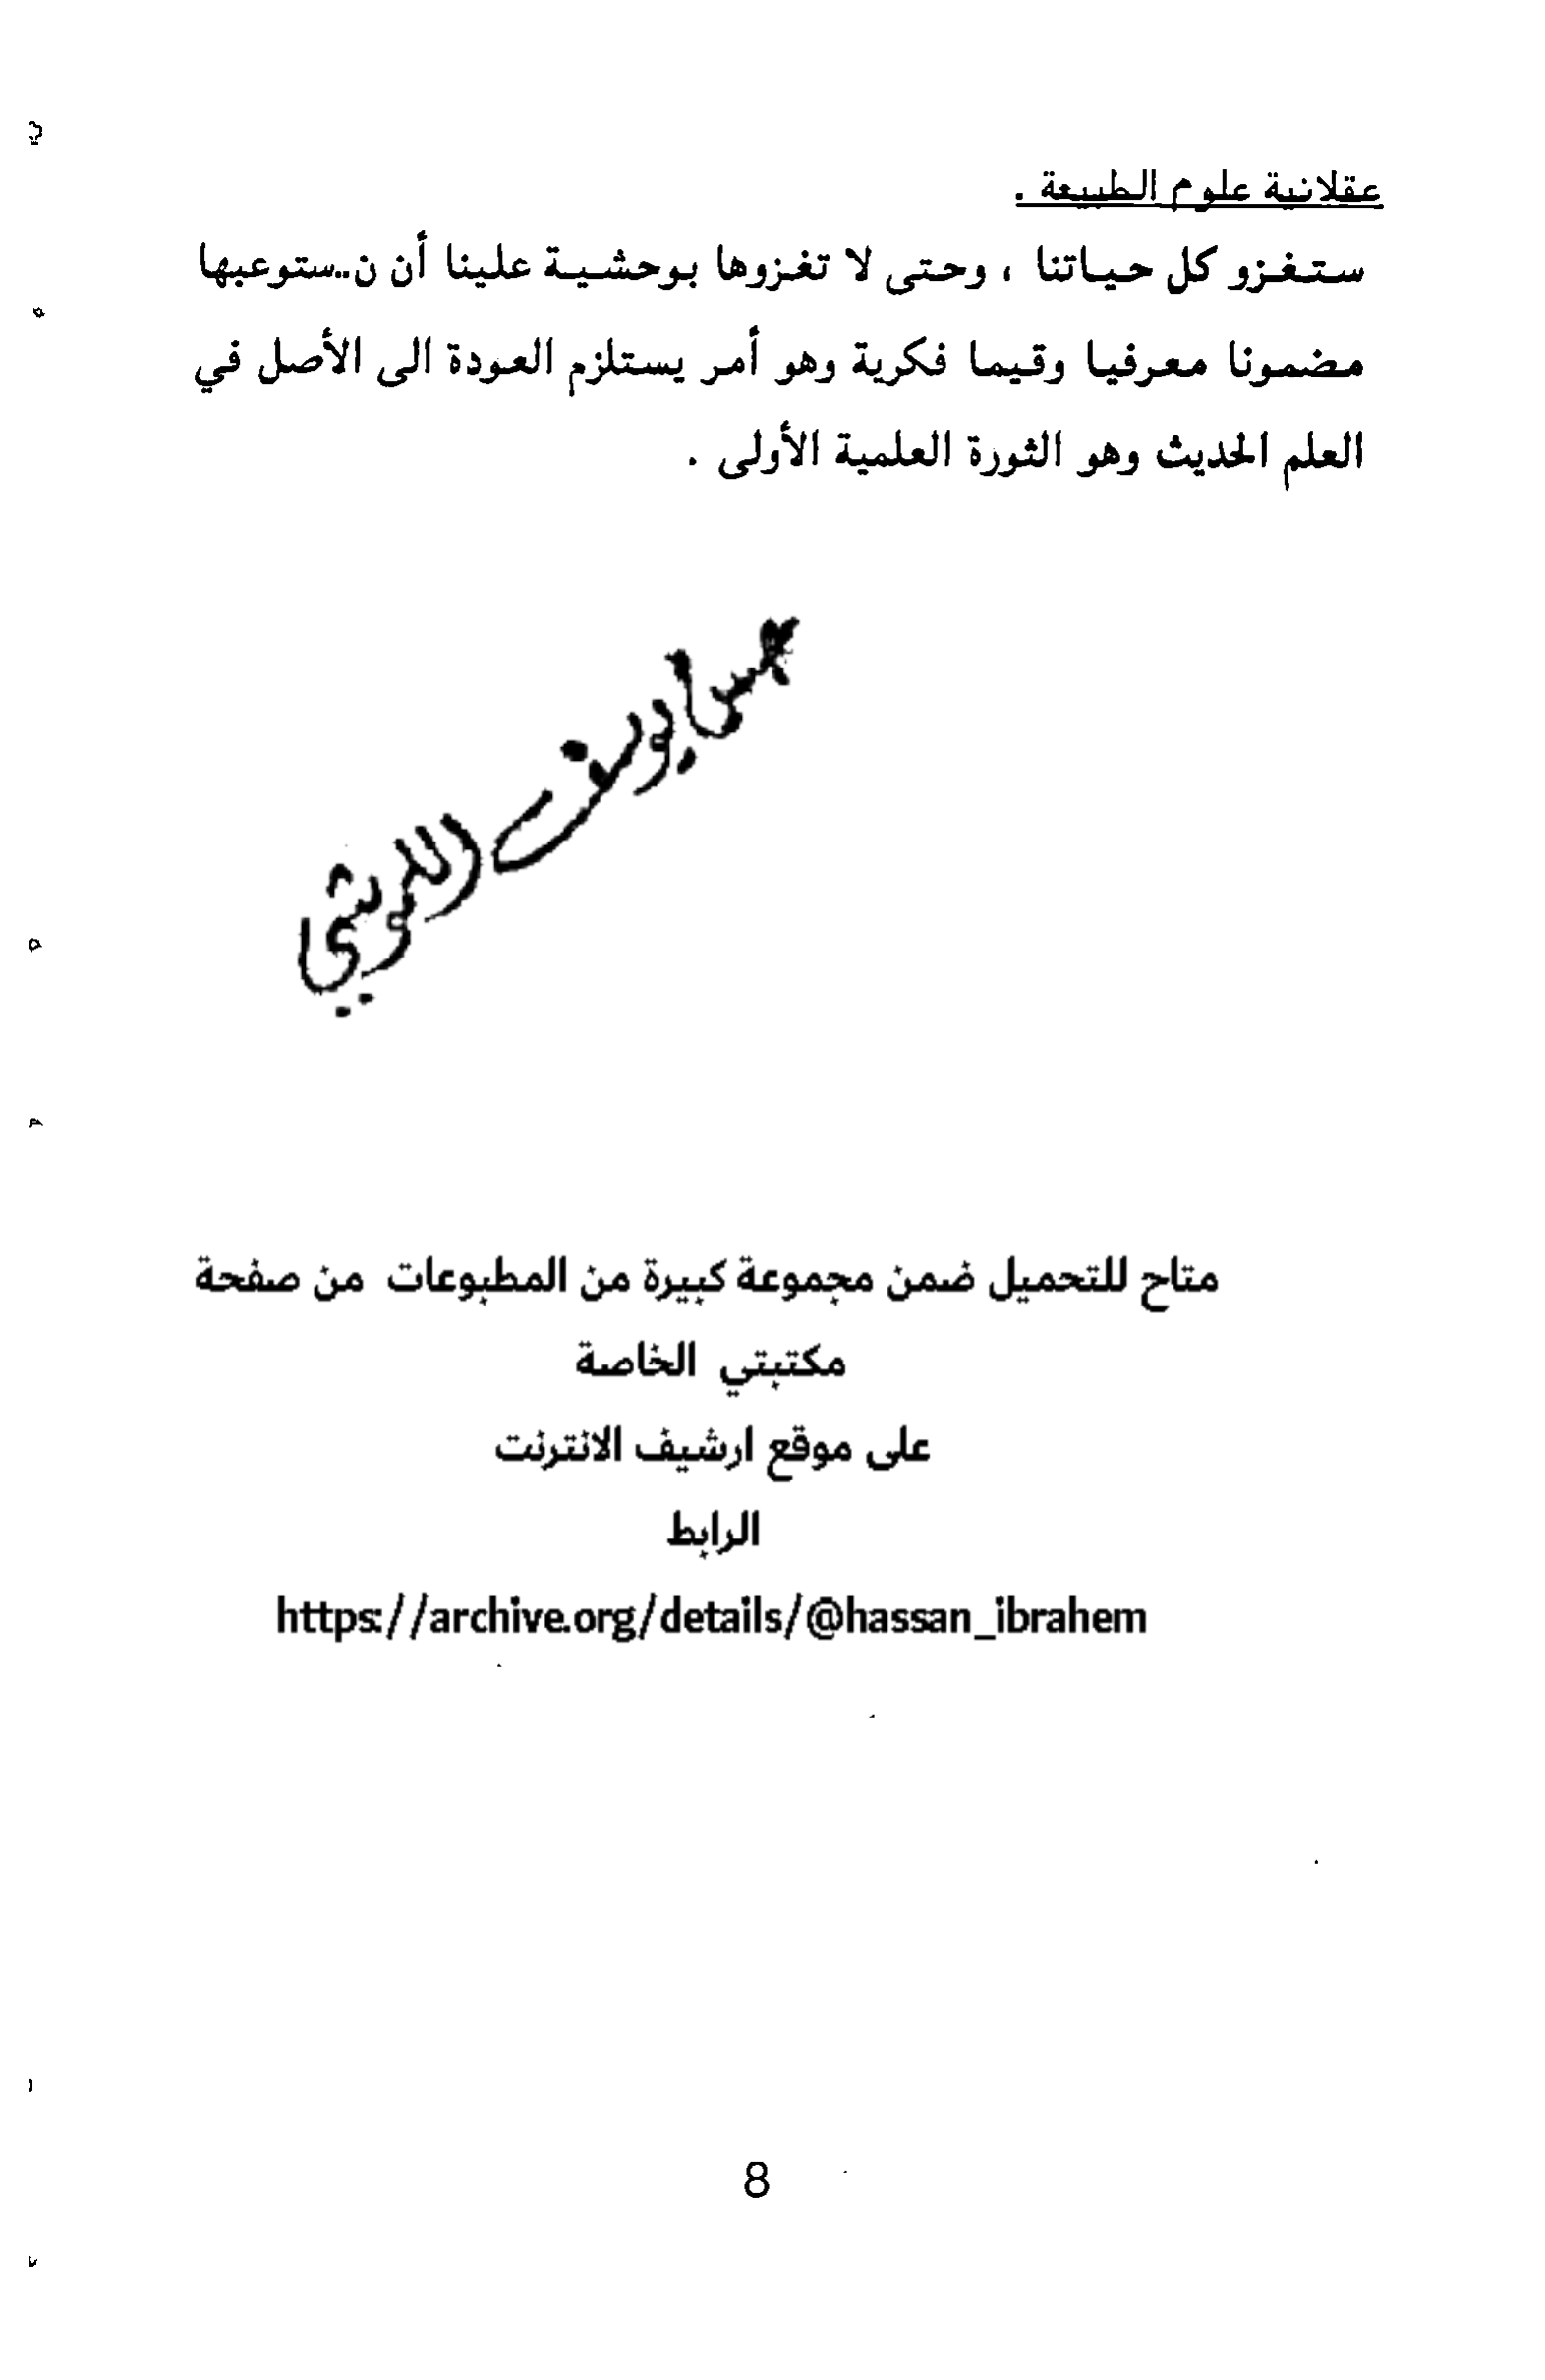 عقلانية علوم الطبيعة .
ستغزو كل حياتنا ، وحتى لا تغزوها بوحشية علينا أن ن..ستوعبها
مضمونا معرفيا وقيما فكرية وهو أمر يستلزم العودة الى الأصل في
العلم الحديث وهو الثورة العلمية الأولى .
متاح للتحميل ضمن مجموعة كبيرة من المطبوعات من صفحة
مكتبتي الخاصة
على موقع ارشيف الانترنت
الرابط
https://archive.org/details/@hassan_ibrahem
8